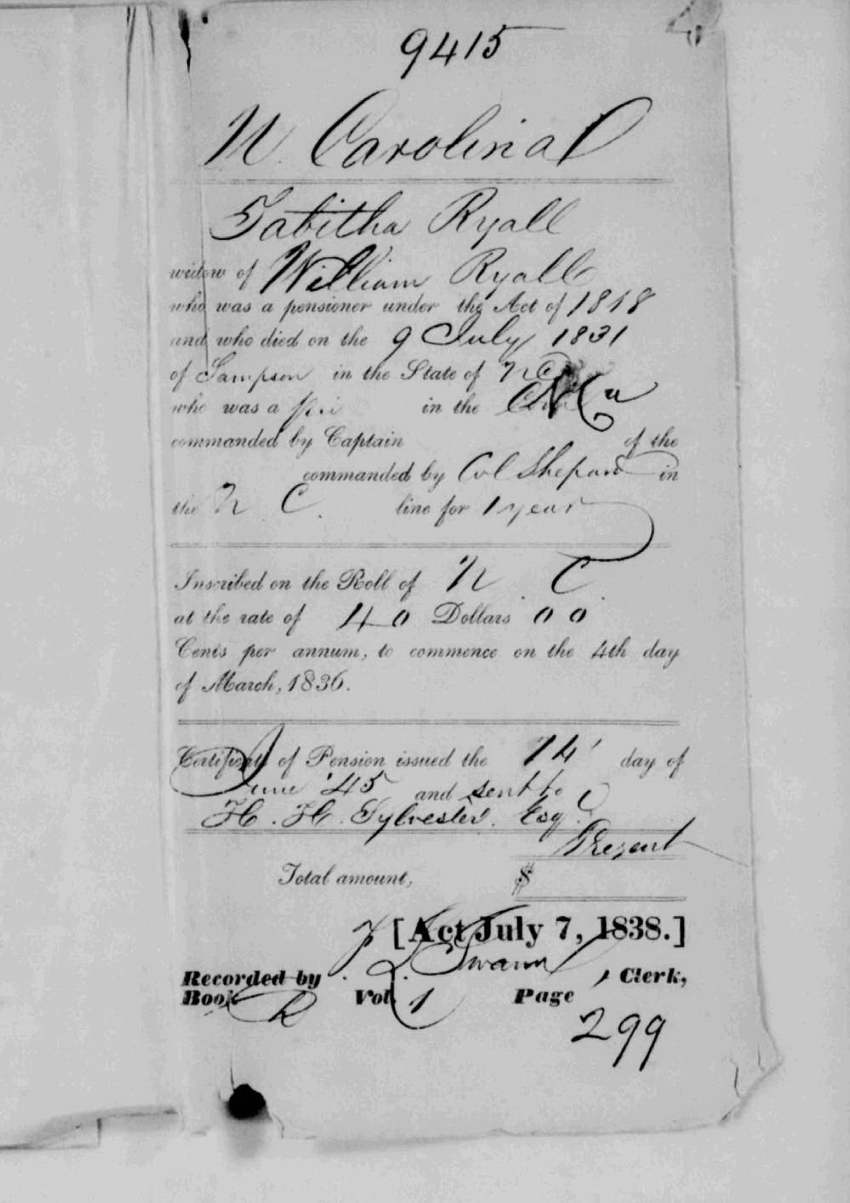 9415
N. Carolina
Tabitha Ryall
widow of William Ryall
who was a pensioner under the Act of 1818
and who died on the 9 July 1831
of Sampson in the State of NC
who was a pri in the
commanded by Captain of the
commanded by Col Shepard in
the N C. line for 1 year
Inscribed on the Roll of N. C.
at the rate of 40 Dollars 00
Cents per annum, to commence on the 4th day
of March, 1836.
Certificate of Pension issued the 14 day of
June '45 and sent to
H. H. Sylvester. Esq.
Present
Total amount, $
[Act July 7, 1838.]
Recorded by Swann, Clerk,
Book Vol. 1 Page
299